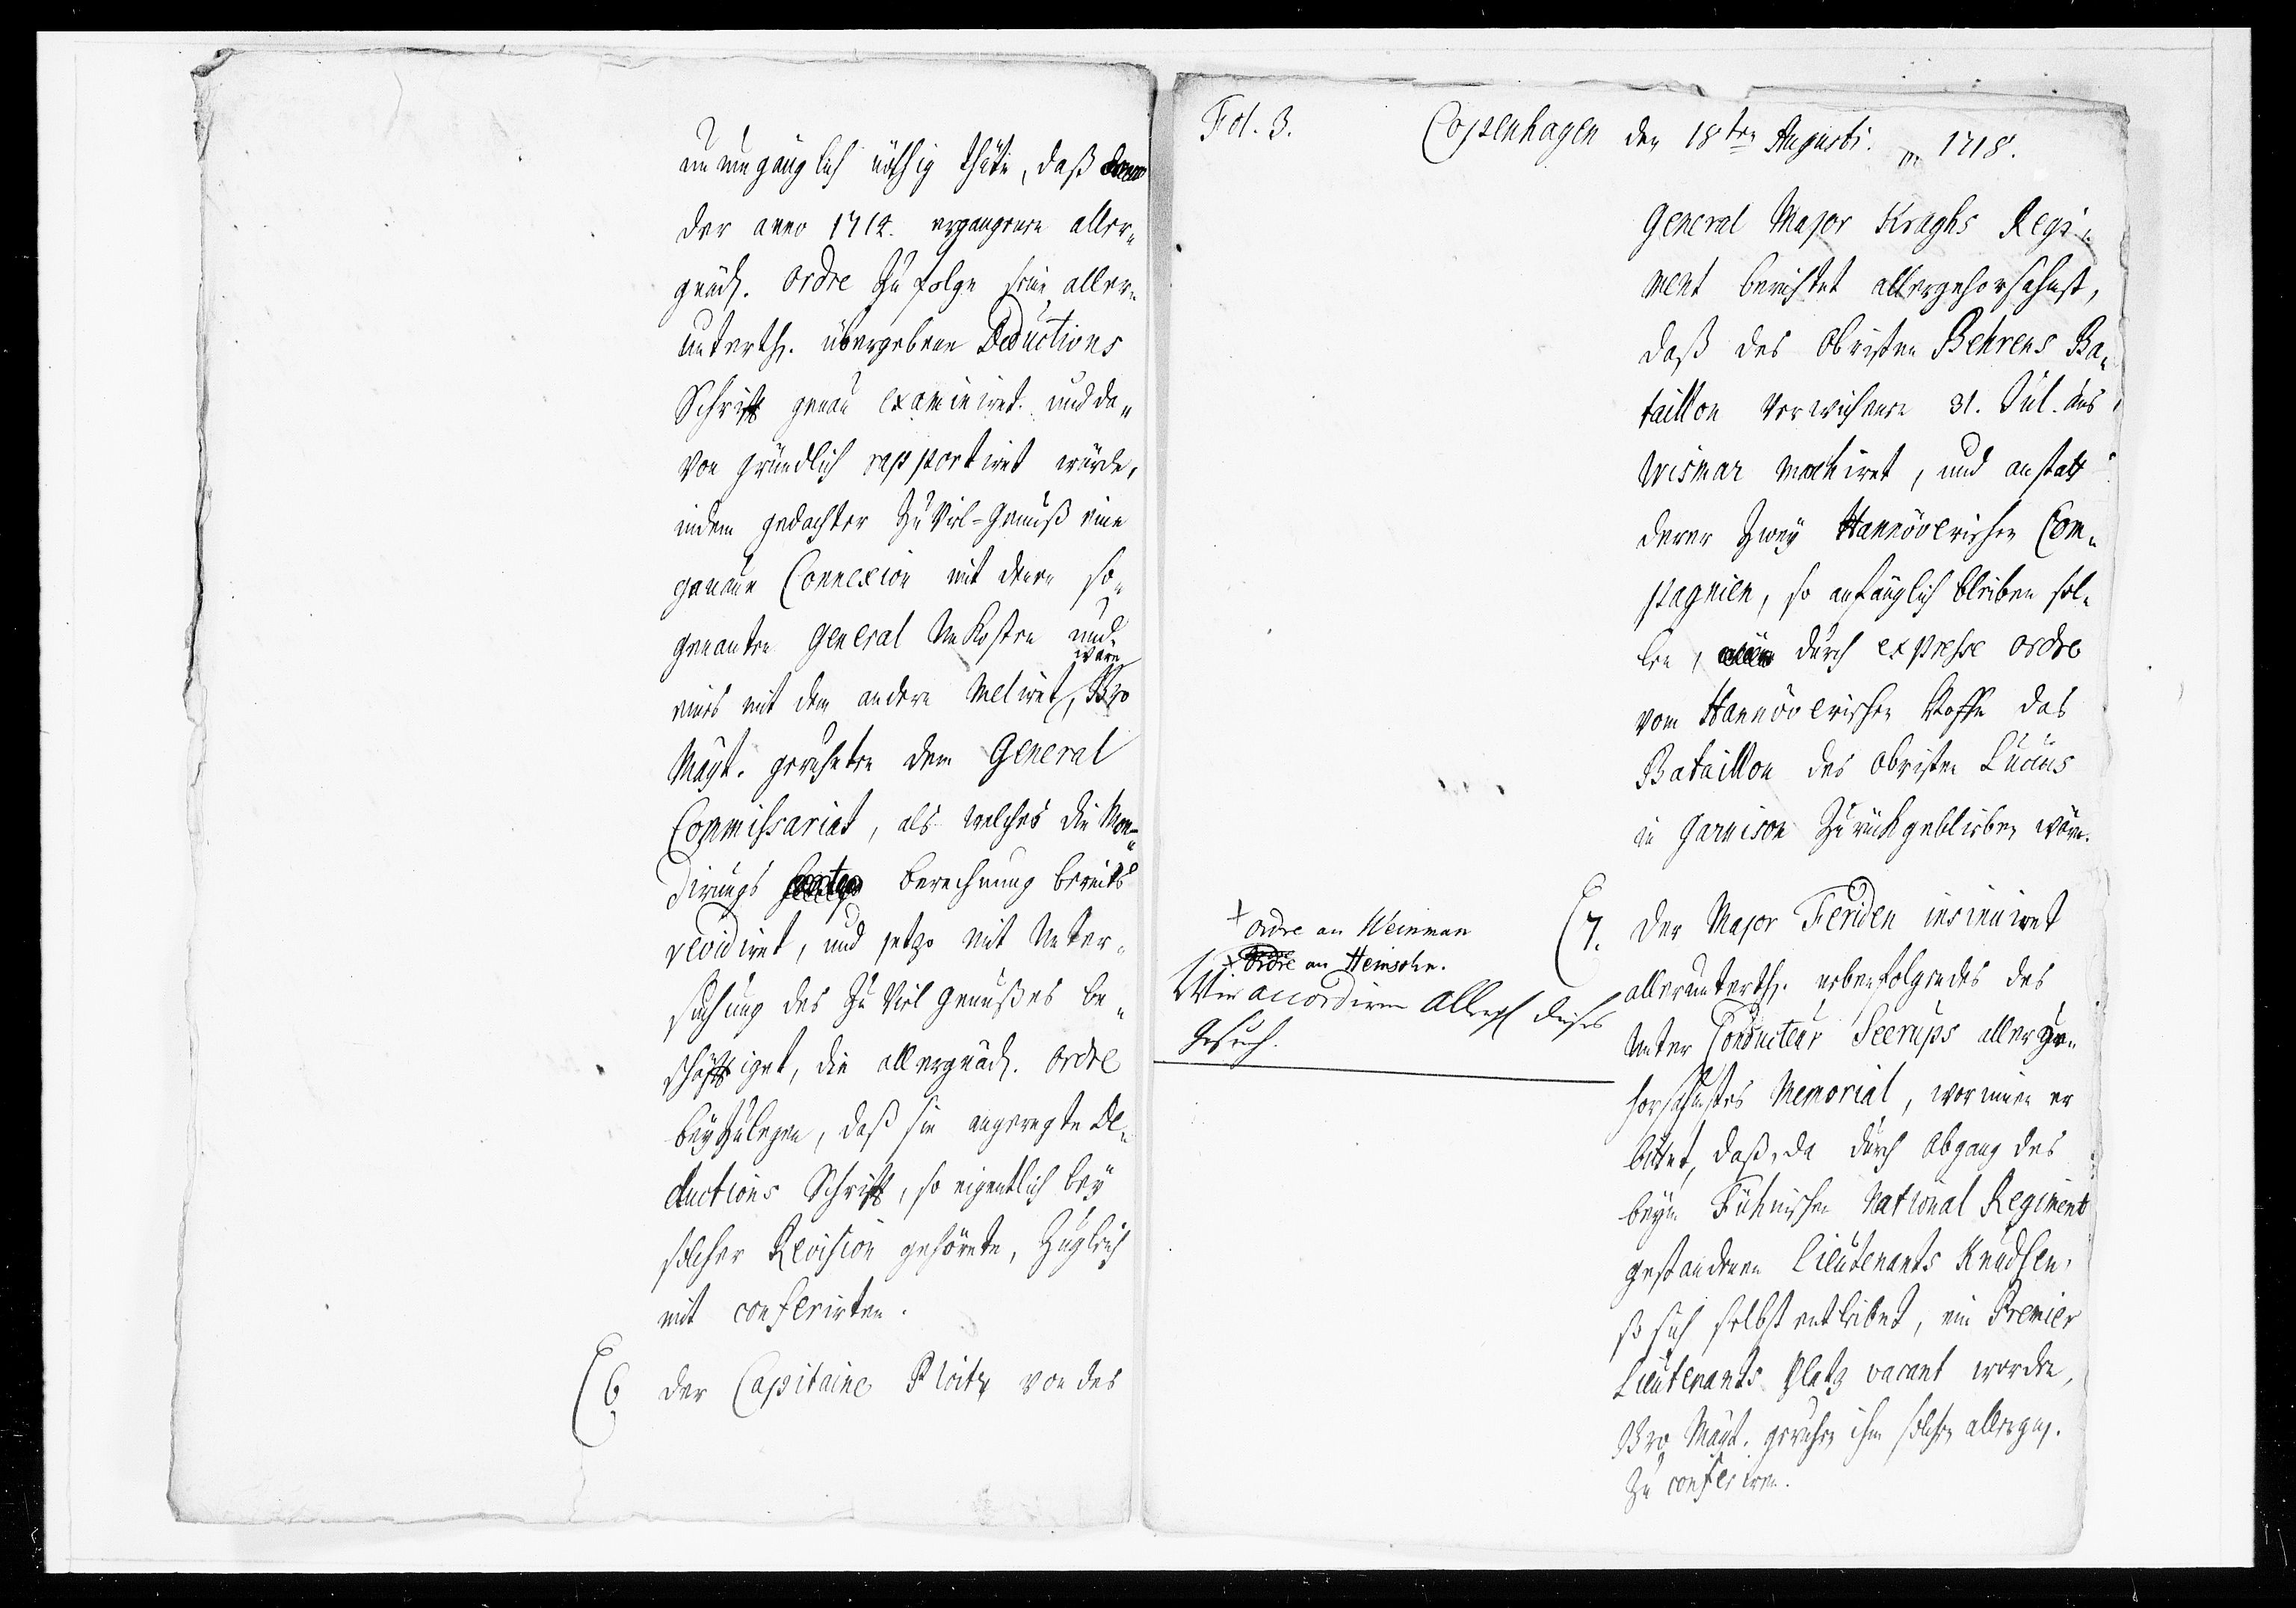 unumgänglich nöthig thäte, daß
der anno 1712. ergangenen aller„
gnäd. Ordre zu folge seine aller„
unterth. übergebene Deductions
Schrifft genau examiniret und da„
von gründlich rapportiret würde,
indem gedachter zu Viel-Genuß eine
genaue Connexion mit denen so„
genanten General Unkosten und
wäre
eines mit dem andern meliret, Ew
Mayt. geruheten dem General
Commissariat, als welches die Mon„
dirungs berechnung bereits
revidiret, und jetzo mit Unter„
suchung des zu Viel genußes be„
schäfftiget, die allergnäd. Ordre
beyzulegen, daß sie angeregte De„
ductions Schrifft, so eigentlich bey
solcher Revision gehörete, zugleich
mit conferirten.
6. Der Capitaine Ploitz von des
Fol. 3. Copenhagen den 18ten Augusti. 1718.
General Major Kraghs Regi„
ment berichtet allergehorsahmst,
daß des Obristen Behrens Ba„
taillon verwichenen 31. Jul. aus
Wismar marchiret, und anstatt
derer zwey Hannöverischen Com„
pagnien, so anfänglich bleiben sol„
len, durch expresse ordre
vom Hannöverischen Hoffe das
Bataillon des Obristen Lucius
in Garnison zurückgeblieben wäre.
+ Ordre an Weinman
+ Ordre an Heinsohn.
Wir accordiren Allergd dieses
Gesuch.
7. Der Major Feriden insinuiret
allerunterth. nebenfolgendes des
Unter Conducteur Seerups allerge„
horsahmstes Memorial, worinnen er
bittet, daß, da durch Abgang des
beym Fühnischen National Regiment
gestandenen Lieutenants Knudsen,
so sich selbst entleibet, ein Premier
Lieutenants Platz vacant worden,
Ew Mayt. geruhen ihm solchen allergn.
zu conferiren.